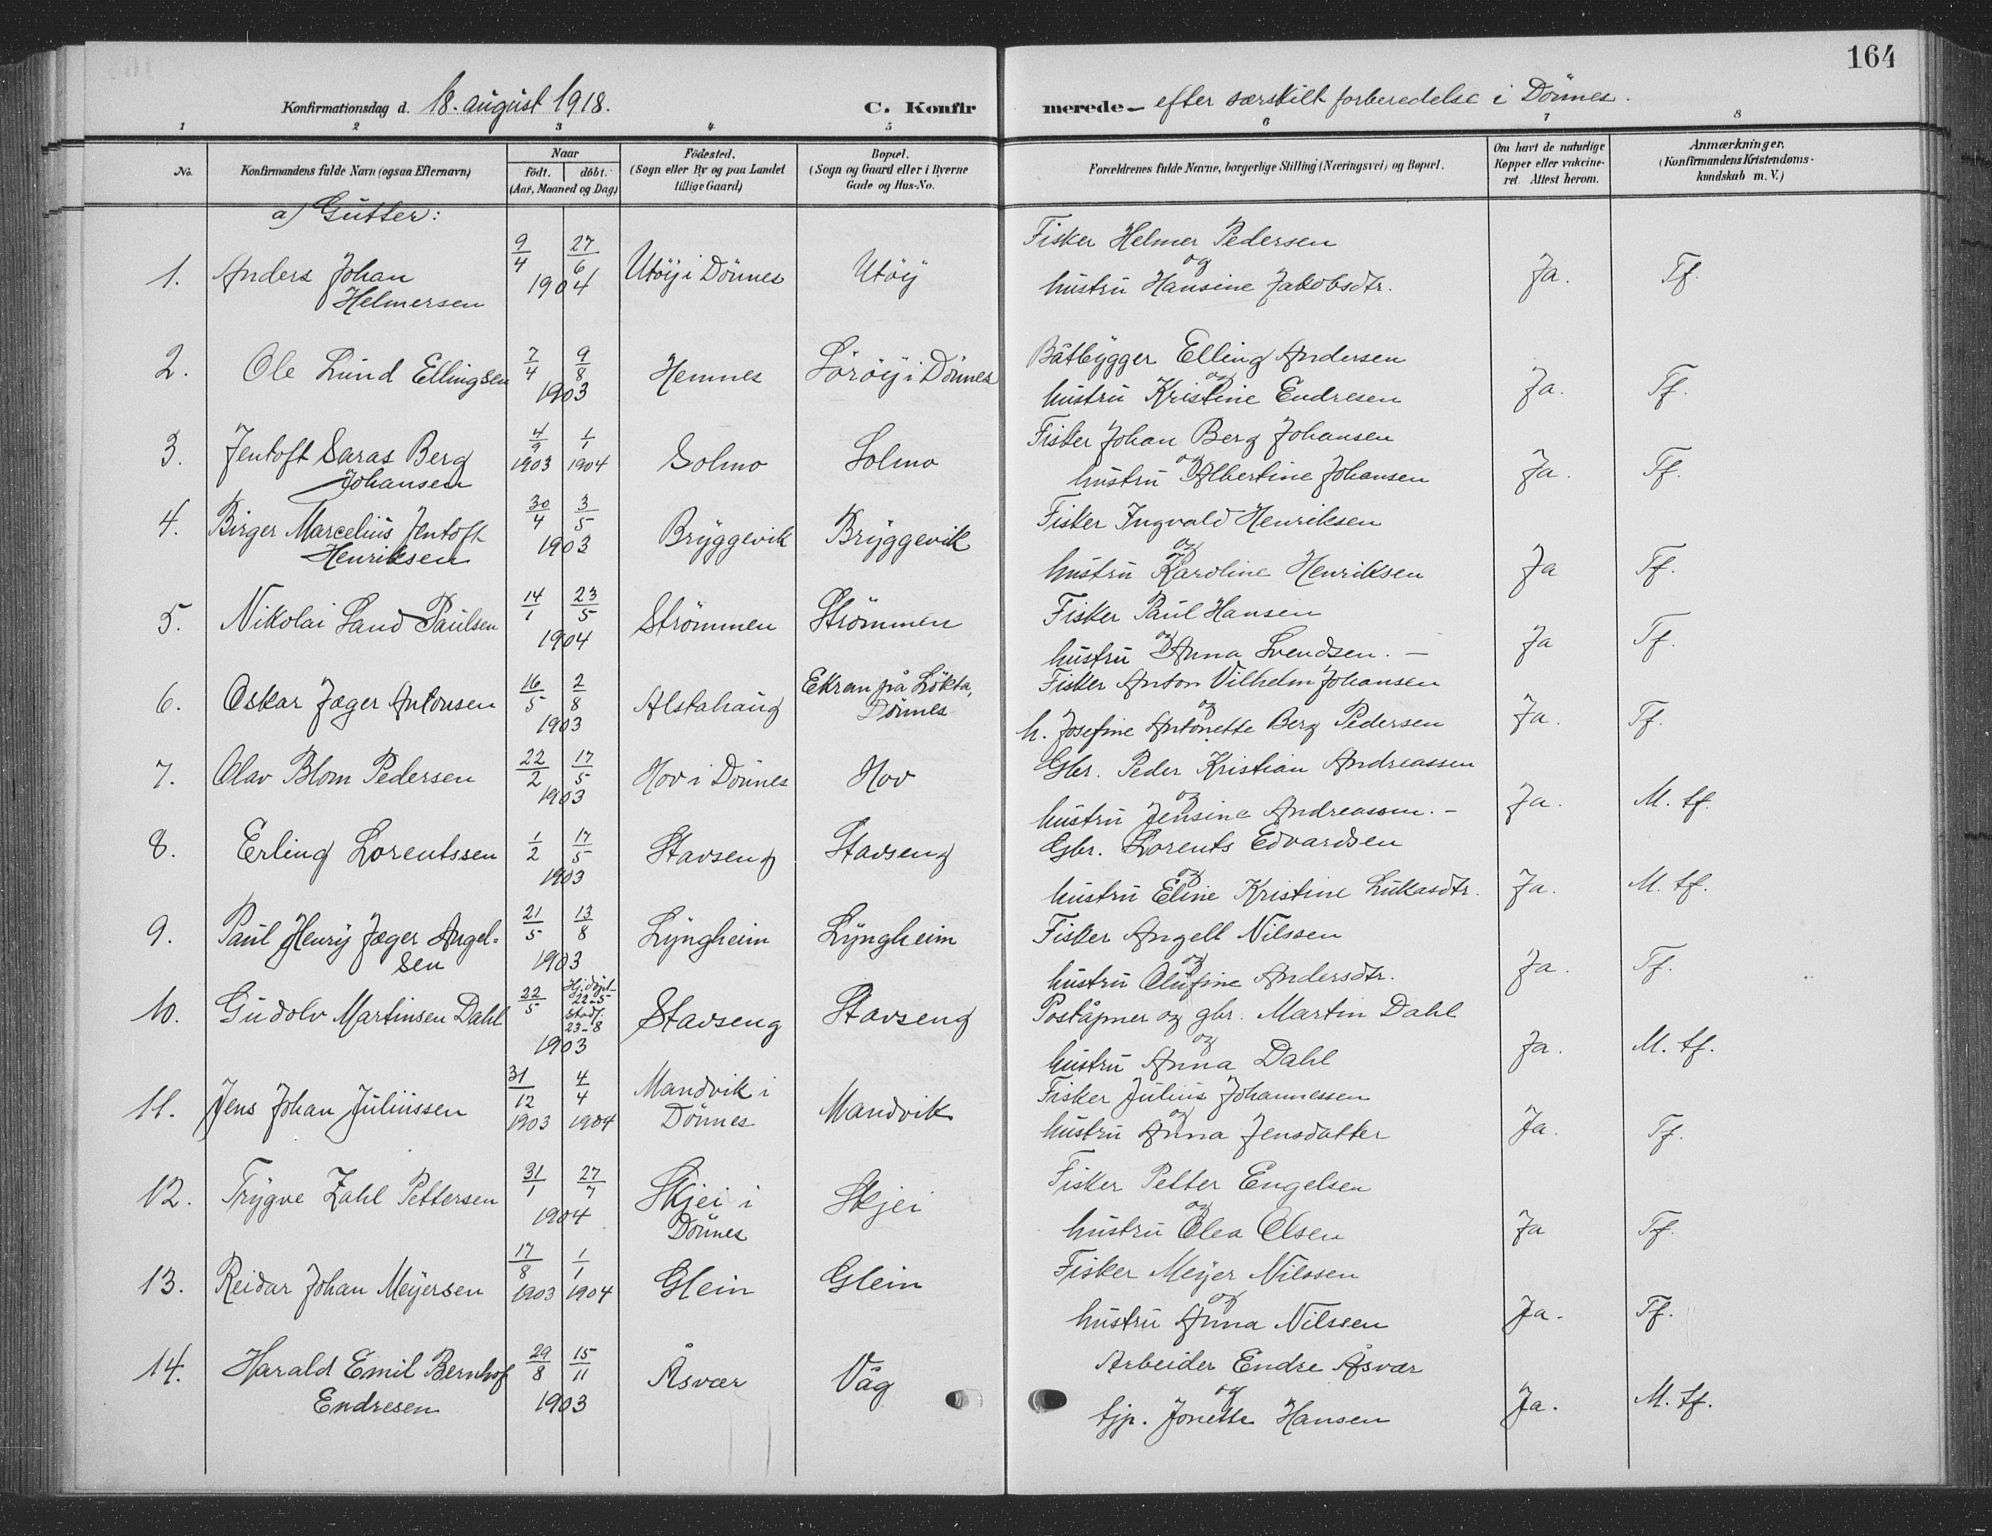 164
Konfirmationsdag d. 18. august 1918. C. Konfirmerede – efter særskilt forberedelse i Dönnes.
1 2 3 4 5 6 7 8
No. Konfirmandens fulde Navn (ogsaa Efternavn) Naar födt. döbt. (Aar, Maaned og Dag) Födested. (Sogn eller By og paa Landet tillige Gaard) Bopæl. (Sogn og Gaard eller i Byerne Gade og Hus-No. Forældrenes fulde Navne, borgerlige Stilling (Næringsvei) og Bopæl. Om havt de naturlige Kopper eller vakcineret. Attest herom. Anmærkninger. (Konfirmandens Kristendomskundskab m. V.)
a) Gutter:
1. Anders Johan Helmersen 9/4 27/6 1904 Utöy i Dönnes Utöy Fisker Helmer Pedersen og hustru Hansine Jakobsdtr. Ja. Tf.
2. Ole Lund Ellingsen 7/4 9/8 1903 Hemnes Söröy i Dönnes Båtbygger Elling Andersen og hustru Kristine Endresen Ja. Tf.
3. Jentoft Saras Berg Johansen 4/9 1903 1/1 1904 Solmo Solmo Fisker Johan Berg Johansen og hustru Albertine Johansen Ja. Tf.
4. Birger Marcelius Jentoft Henriksen 30/4 3/5 1903 Bryggevik Bryggevik Fisker Ingvald Henriksen og hustru Karoline Henriksen Ja Tf.
5. Nikolai Sand Paulsen 14/1 23/5 1904 Strömmen Strömmen Fisker Paul Hansen og hustru Anna Svendsen. – Ja Tf.
6. Oskar Jæger Antonsen 16/5 2/8 1903 Alstahaug Ekran på Lökta, Dönnes Fisker Anton Vilhelm Johansen og h. Josefine Antonette Berg Pedersen Ja. Tf.
7. Olav Blom Pedersen 22/2 17/5 1903 Hov i Dönnes Hov Gbr. Peder Kristian Andreassen og hustru Jensine Andreassen. – Ja. M. tf.
8. Erling Lorentssen 1/2 17/5 1903 Stavseng Stavseng Gbr. Lorents Edvardsen og hustru Eline Kristine Lukasdtr. Ja. M. tf.
9. Paul Henry Jæger Angel- sen 21/5 13/8 1903 Lyngheim Lyngheim Fisker Angell Nilssen og hustru Olufine Andersdtr. Ja. Tf.
10. Gudolv Martinsen Dahl 22/5 Hj. döpt 22-5 Stadf. 23-8 1903 Stavseng Stavseng Poståpner og gbr. Martin Dahl og hustru Anna Dahl Ja. M. tf.
11. Jens Johan Juliussen 31/12 1903 4/4 1904 Mandvik i Dönnes Mandvik Fisker Julius Johannessen og hustru Anna Jensdatter Ja. Tf.
12. Trygve Zahl Pettersen 31/1 27/7 1904 Skjei i Dönnes Skjei Fisker Petter Engelsen og hustru Olea Olsen Ja Tf.
13. Reidar Johan Meyersen 17/8 1903 1/1 1904 Glein Glein Fisker Meyer Nilssen og hustru Anna Nilssen Ja. Tf.
14. Harald Emil Bernhof Endresen 29/8 15/11 1903 Åsvær Våg Arbeider Endre Åsvær og tjp. Jonette Hansen Ja. M. tf.